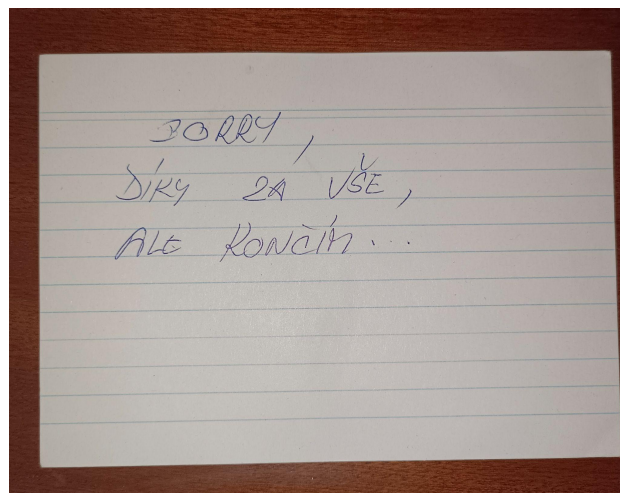 SORRY,
DÍKY ZA VŠE,
ALE KONČÍM...